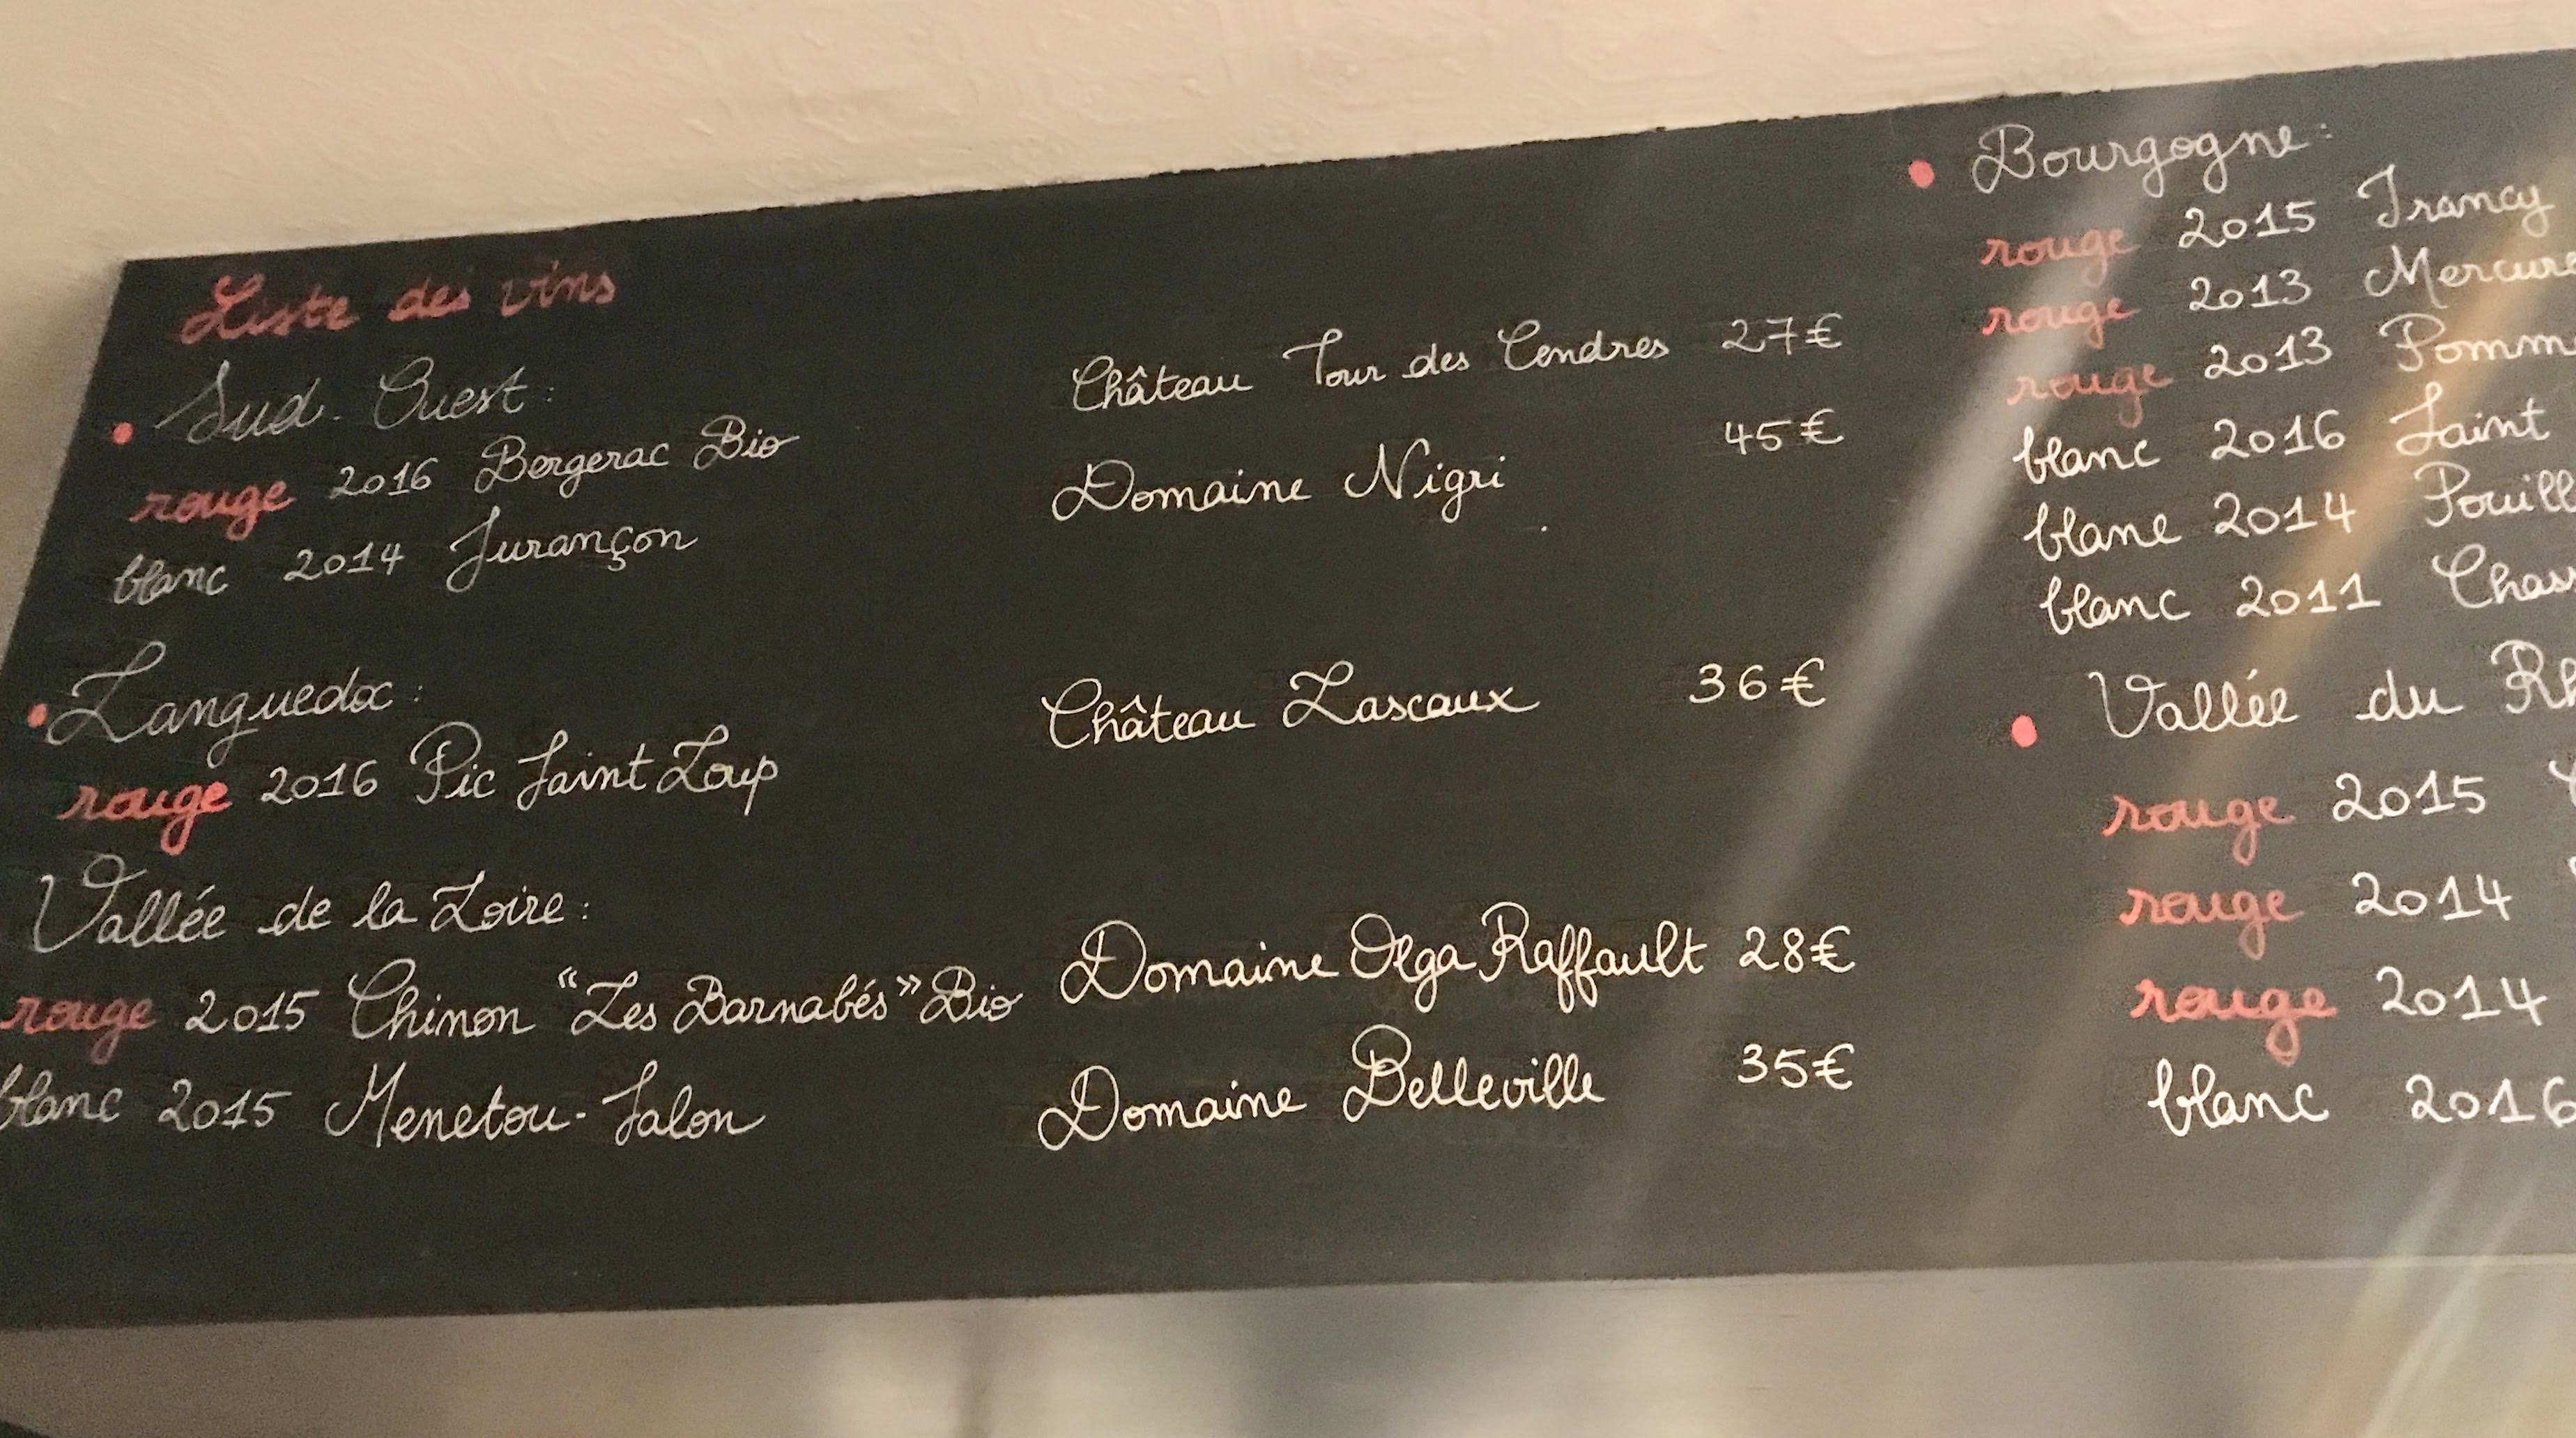 Liste des vins
Sud-Ouest:
rouge 2016 Bergerac Bio Château Tour des Gendres 27€
blanc 2014 Jurançon Domaine Nigri 45€
Languedoc:
rouge 2016 Pic Saint Loup Château Lascaux 36€
Vallée de la Loire:
rouge 2015 Chinon "Les Barnabés" Bio Domaine Olga Raffault 28€
blanc 2015 Menetou-Salon Domaine Belleville 35€
Bourgogne:
rouge 2015 Irancy
rouge 2013
rouge 2013
blanc 2016 Saint
blanc 2014
blanc 2011
Vallée du
rouge 2015
rouge 2014
rouge 2014
blanc 2016